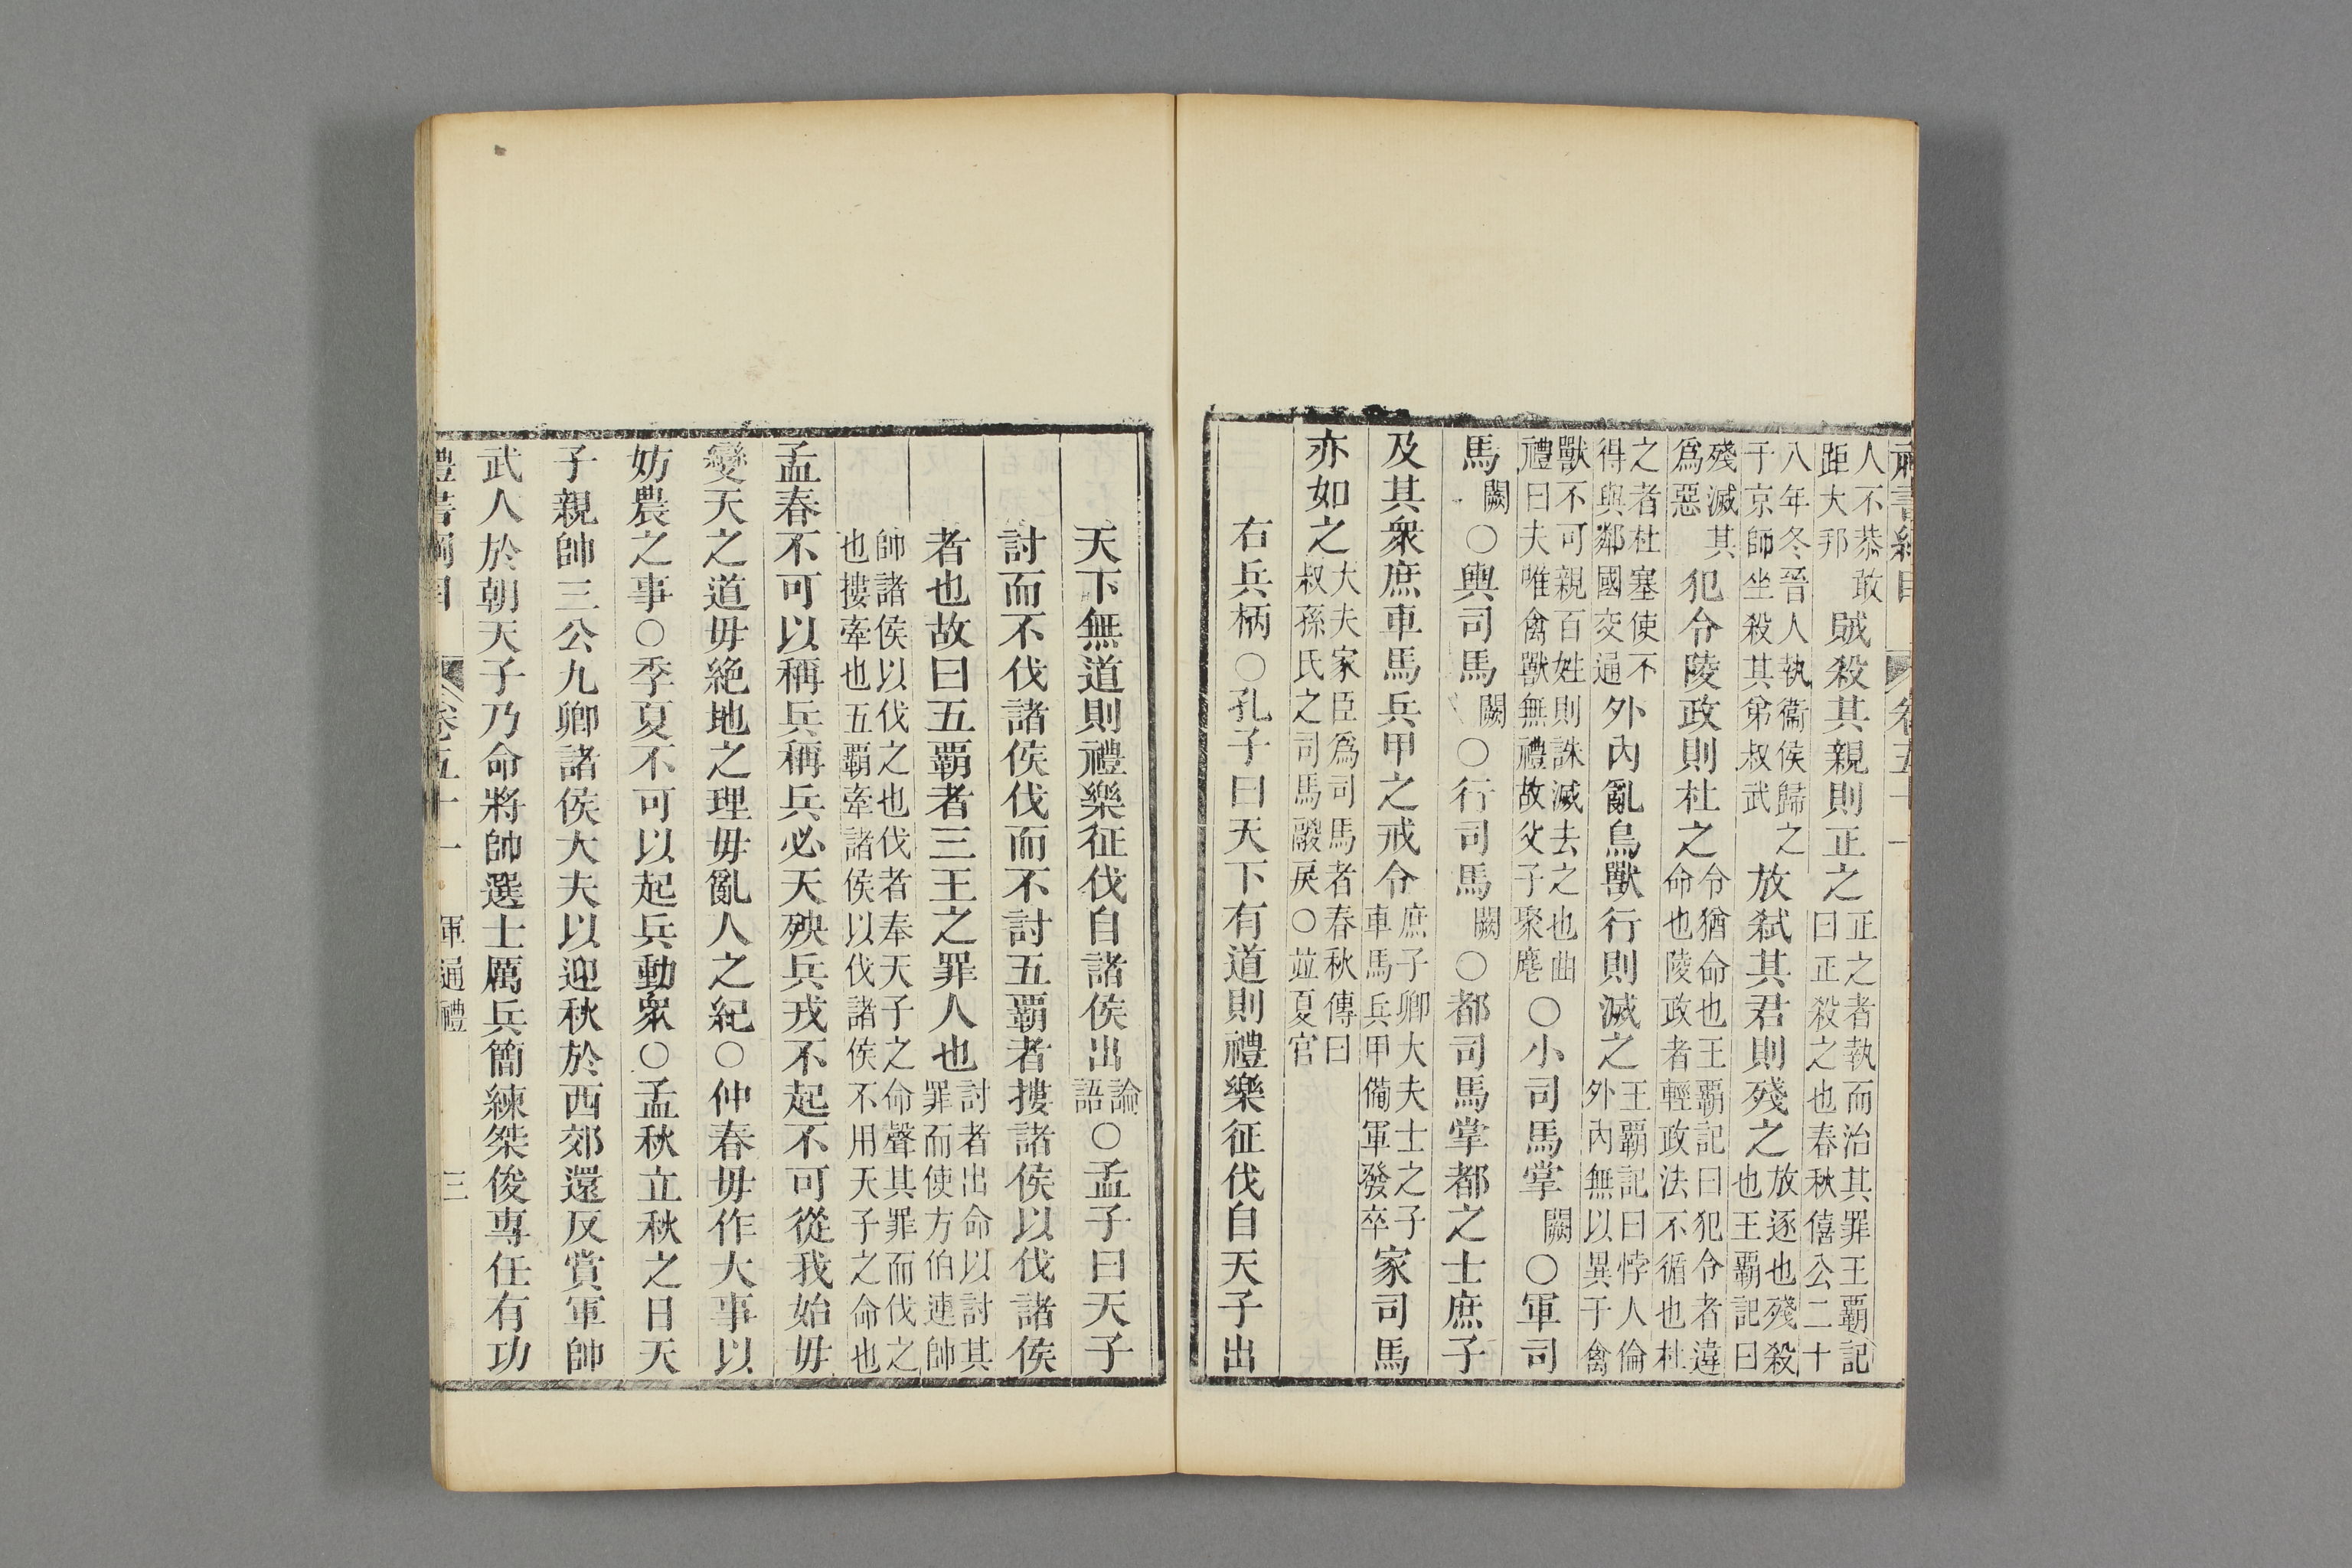 書綱目 卷五十一
人不恭敢距大邦賊殺其親則正之正之者執而治其罪王覇記曰正殺之也春秋僖公二十
八年冬晉人執衞侯歸之于京師坐殺其弟叔武放弒其君則殘之放逐也殘殺也王覇記曰
殘滅其爲惡犯令陵政則杜之令猶命也王覇記曰犯令者違命也陵政者輕政法不循也杜
之者杜塞使不得與鄰國交通外內亂鳥獸行則滅之王覇記曰悖人倫外內無以異于禽
獸不可親百姓則誅滅去之也曲禮曰夫唯禽獸無禮故父子聚麀○小司馬掌闕○軍司
馬闕○輿司馬闕○行司馬闕○都司馬掌都之士庶子
及其衆庶車馬兵甲之戒令庶子卿大夫士之子車馬兵甲備軍發卒家司馬
亦如之大夫家臣爲司馬者春秋傳曰叔孫氏之司馬鬷戾○竝夏官
右兵柄○孔子曰天下有道則禮樂征伐自天子出
天下無道則禮樂征伐自諸侯出論語○孟子曰天子
討而不伐諸侯伐而不討五覇者摟諸侯以伐諸侯
者也故曰五覇者三王之罪人也討者出命以討其罪而使方伯連帥
帥諸侯以伐之也伐者奉天子之命聲其罪而伐之也摟牽也五覇牽諸侯以伐諸侯不用天子之命也
孟春不可以稱兵稱兵必天殃兵戎不起不可從我始毋
變天之道毋絶地之理毋亂人之紀○仲春毋作大事以
妨農之事○季夏不可以起兵動衆○孟秋立秋之日天
子親帥三公九卿諸侯大夫以迎秋於西郊還反賞軍帥
武人於朝天子乃命將帥選士厲兵簡練桀俊專任有功
禮書綱目 卷五十一 軍通禮 三